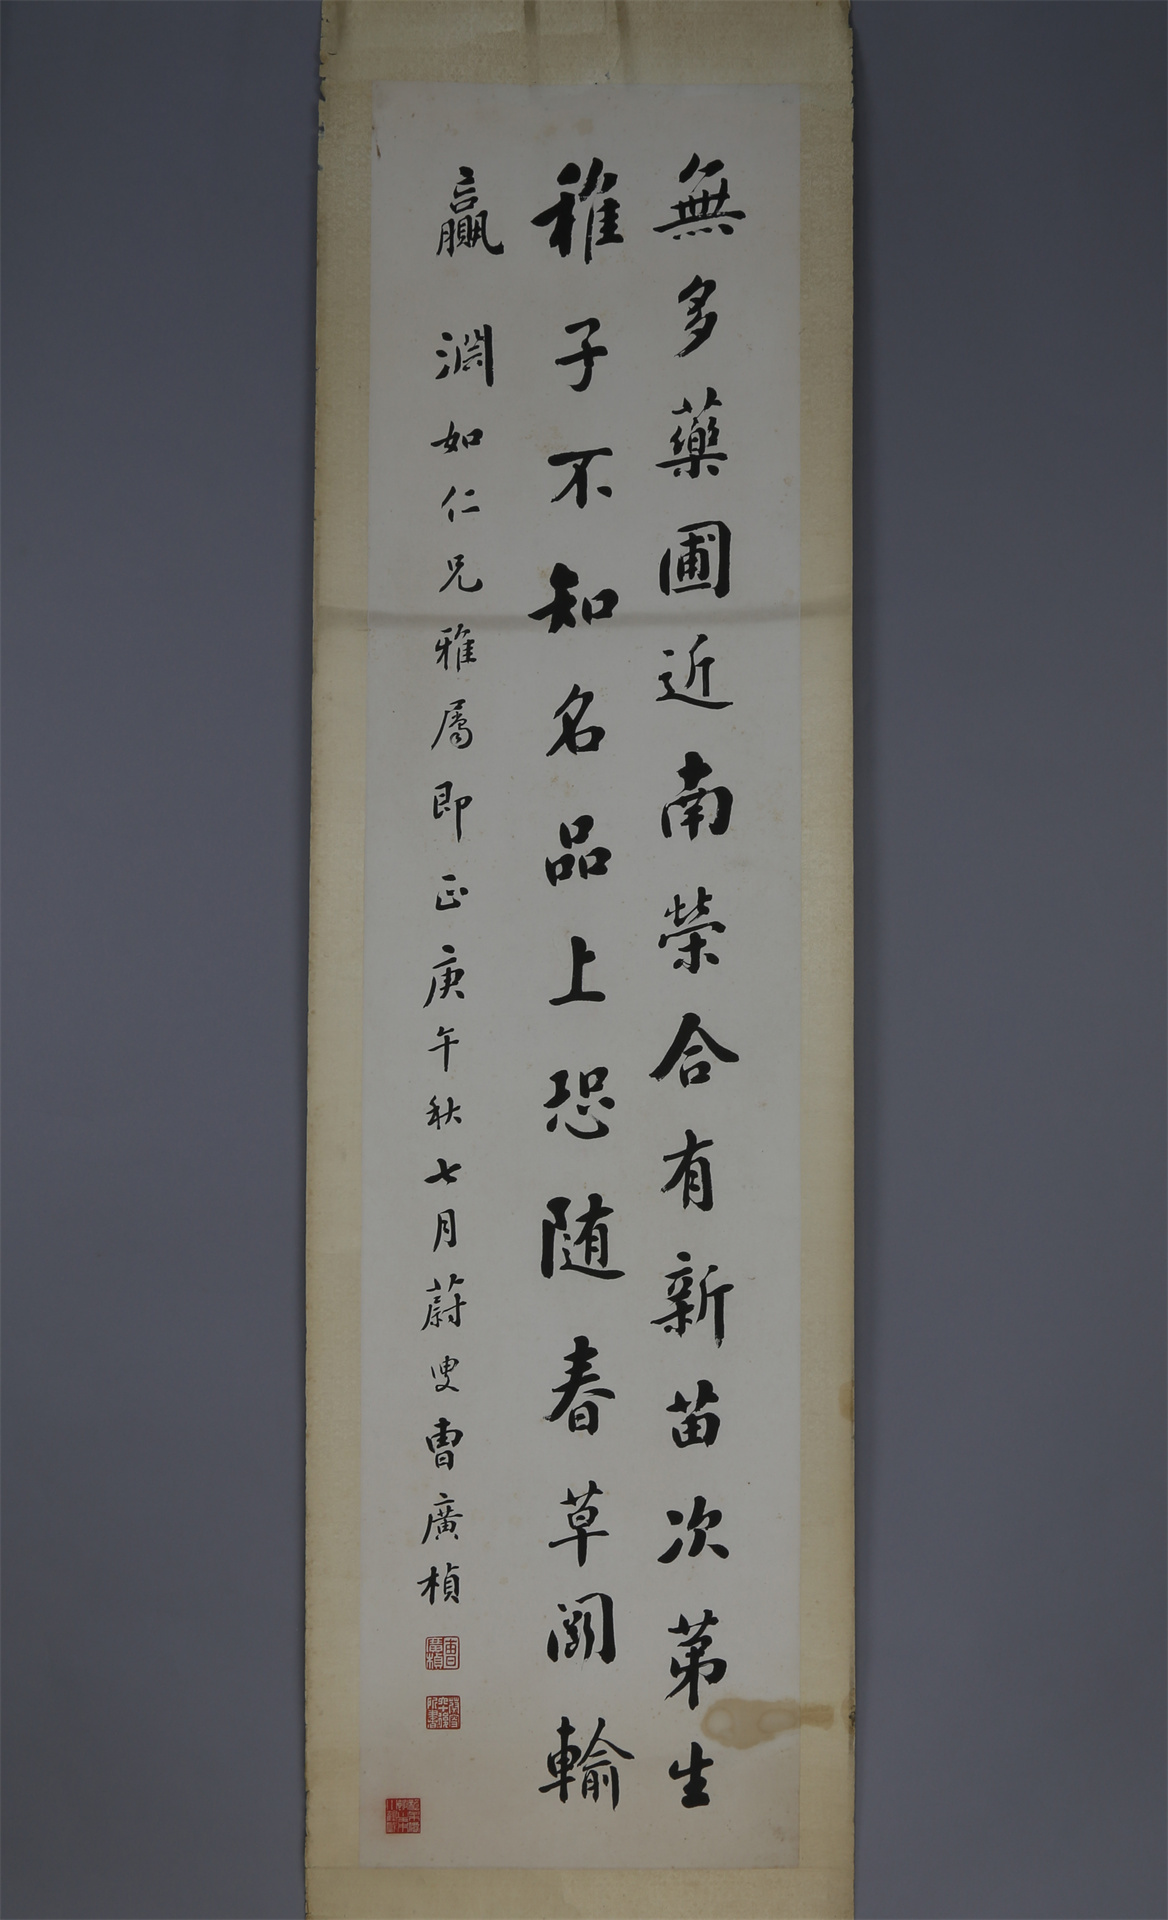 無多藥圃近南榮合有新苗次第生
稚子不知名品上恐随春草鬭輸
贏 淵如仁兄雅屬即正庚午秋七月蔚叟曹廣楨
曹廣楨